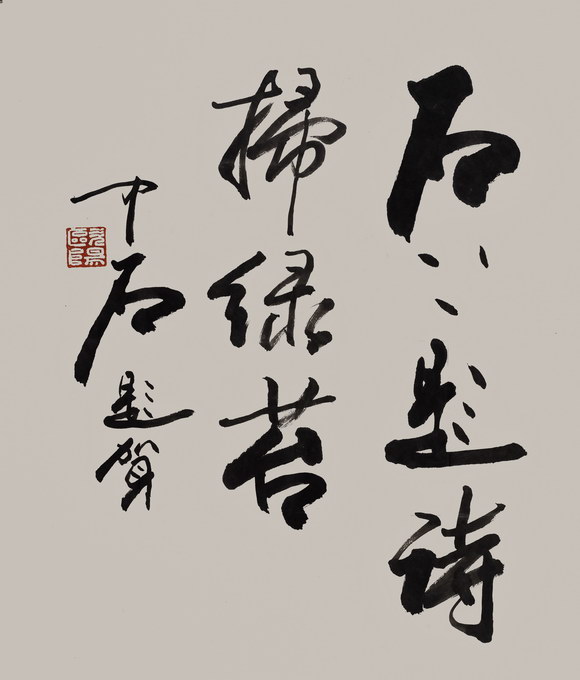 石上題詩
掃綠苔
中石題賀